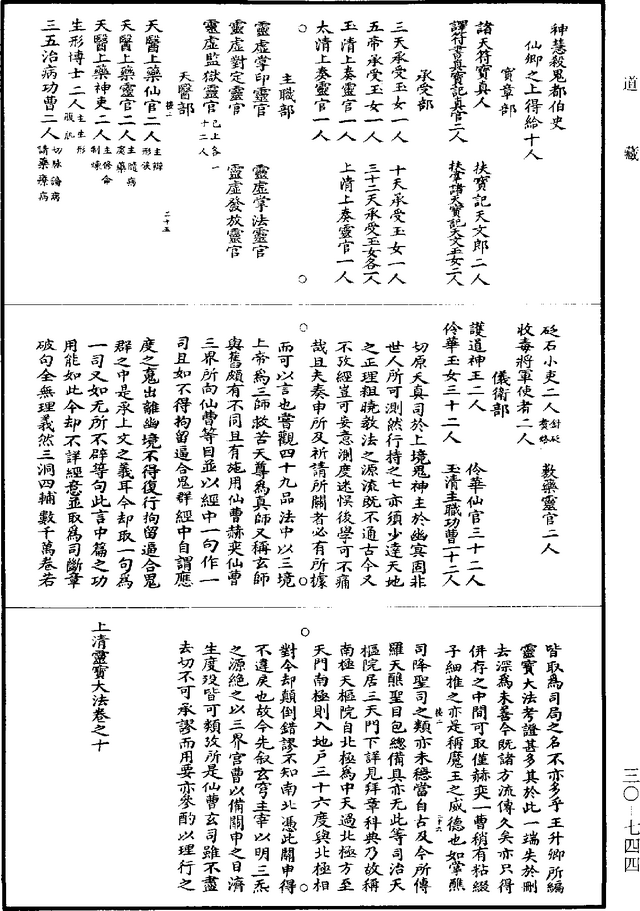 道藏
神慧殺鬼都伯史
仙卿之上得給十人
寶章部
諸天符寶真人　扶寶記天文郎二人
譯符書真寶記真官二人　扶舉諸天寶記天文玉女二人
承受部
三天承受玉女一人　十天承受玉女一人
五帝承受玉女一人　三十二天承受玉女各一人
玉清上奏靈官一人　上清上奏靈官一人
太清上奏靈官一人
主職部
靈虛掌印靈官　靈虛掌法靈官
靈虛對定靈官　靈虛發放靈官
靈虛監獄靈官已上各一十二人
天醫部
天醫上藥仙官二人主辦形候
天醫上藥靈官二人主隨病處藥
天醫上藥神吏二人主條命制煉
生形博士二人主生形腹肌
三五治病功曹二人切脉論病請藥療病
砭石小吏二人針砭賣絡　數藥靈官二人
收毒將軍使者二人
儀衛部
護道神王二人　伶華仙官三十二人
伶華玉女三十二人　玉清主職功曹一十二人
切原天真司於上境鬼神主於幽冥固非
世人所可測然行持之士亦須少達天地
之正理粗曉教法之源流既不通古今又
不攷經豈可妄意測度迷悞後學可不痛
哉且夫奏申所及祈請所關者必有所據
而可以言也嘗觀四十九品法中以三境
上帝為三師救苦天尊為真師又稱玄師
與舊頗有不同且有施用仙曹赫奕仙曹
三界所向仙曹等目並以經中一句作一
司且如不得拘留逼合鬼群經中自謂應
度之䰟出離幽境不得復行拘留逼合鬼
群之中是承上文之義耳今却取一句為
一司又如无所不辟等句此言中篇之功
用能如此今却不詳經意並取為司斷章
破句全無理義然三洞四輔數千萬卷若
皆取為司局之名不亦多乎王升卿所編
靈寶大法考證甚多其於此一端失於刪
去深為未善今既諸方流傳久矣亦只得
併存之中間可取僅赫奕一曹稍有粘綴
子細推之亦是稱魔王之威德也如掌醮
司降聖司之類亦未穩當自古及今所傳
羅天醮聖目包總備具亦无此等司治天
樞院居三天門下詳見拜章科典乃故稱
南極天樞院自北極為中天過北極方至
天門南極則入地戶三十六度與北極相
對今却顛倒錯謬不知南北憑此關申得
不違戾也故今先叙玄穹主宰以明三炁
之源絕之以三界官曹以備關申之目濟
生度没皆可類攷所是仙曹玄司雖不盡
去切不可承謬而用要亦參酌以理行之
上清靈寶大法卷之十
三〇—七四四